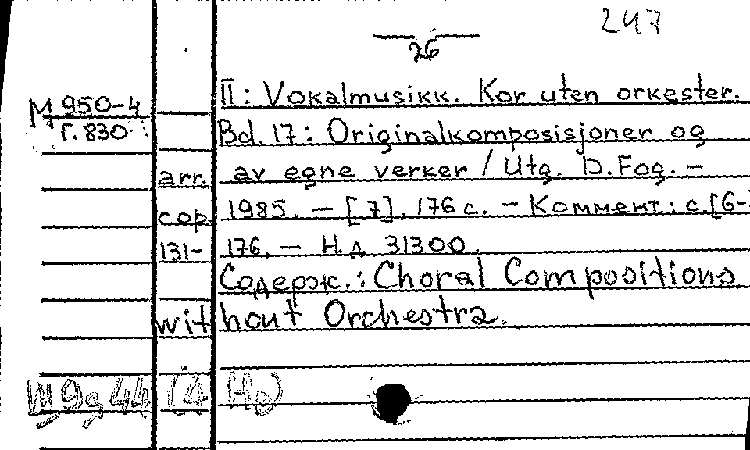 247
26
II: Vokalmusikk. Kor uten orkester.
М 950-4
Г. 830
Bd. 17: Originalkomposisjoner og
arr. av egne verker / Utg. D. Fog. –
cop. 1985. – [7], 176 с. – Коммент.: с. [6-
131- 176. – Н.д. 31300.
Содерж.: Choral Compositions
without Orchestra.
Ш9g44(4 Но)